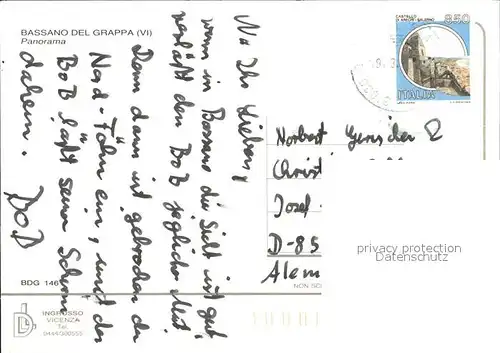 BASSANO DEL GRAPPA (VI)
Panorama
Na Ihr Lieben,
wenn in Bassano die Sicht ist gut
verläßt den BoB jeglicher Mut
Denn dann ist gebrochen der
Nord-Föhn ein, und der
BoB läßt seinen Schirm
daheim.
BoB
BDG 146
INGROSSO
VICENZA
Tel.
0444/300555
CASTELLO
DI ARECHI - SALERNO
850
ITALIA
Norbert
Christ
Josef-
D-85
Alem
NON SC
privacy protection
Datenschutz